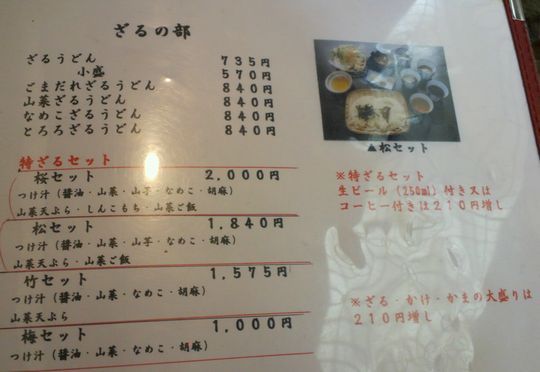 ざるの部
ざるうどん 735円
小盛 570円
ごまだれざるうどん 840円
山菜ざるうどん 840円
なめこざるうどん 840円
とろろざるうどん 840円
▲松セット
特ざるセット
桜セット 2,000円
つけ汁(醤油・山菜・山芋・なめこ・胡麻)
山菜天ぷら・しんこもち・山菜ご飯
松セット 1,840円
つけ汁(醤油・山菜・山芋・なめこ・胡麻)
山菜天ぷら・山菜ご飯
竹セット 1,575円
つけ汁(醤油・山菜・なめこ・胡麻)
山菜天ぷら
梅セット 1,000円
つけ汁(醤油・山菜・なめこ・胡麻)
※特ざるセット
生ビール(250ml)付き又は
コーヒー付きは210円増し
※ざる・かけ・かまの大盛りは
210円増し